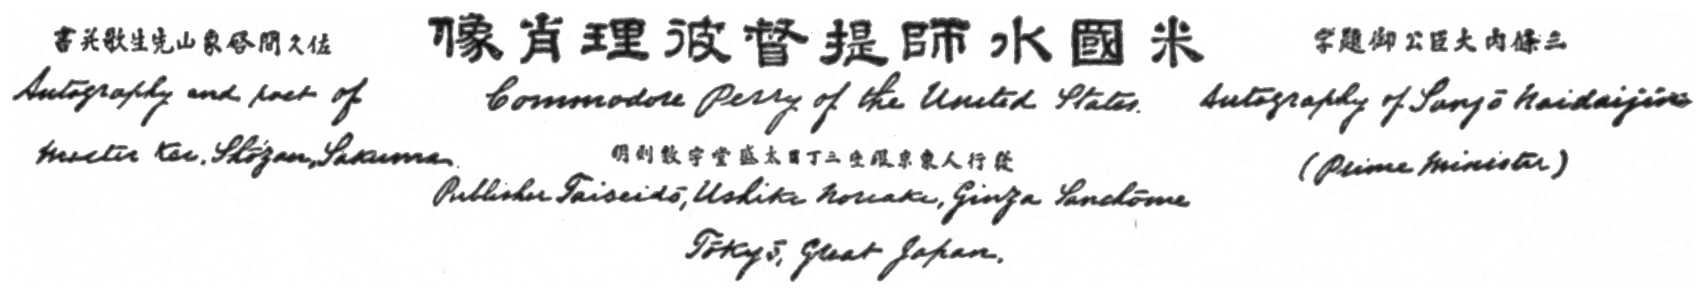 三條内大臣公御題字
Autography of Sanjō Naidaijin
(Prime Minister)
米國水師提督彼理肖像
Commodore Perry of the United States.
發行人東京銀座三丁目太盛堂宇敷則明
Publisher Taiseidō, Ushiki Noriaki, Ginza Sanchōme
Tōkyō, Great Japan.
佐久間啓象山先生歌并書
Autography and poet of
Master Kei, Shōzan, Sakuma.